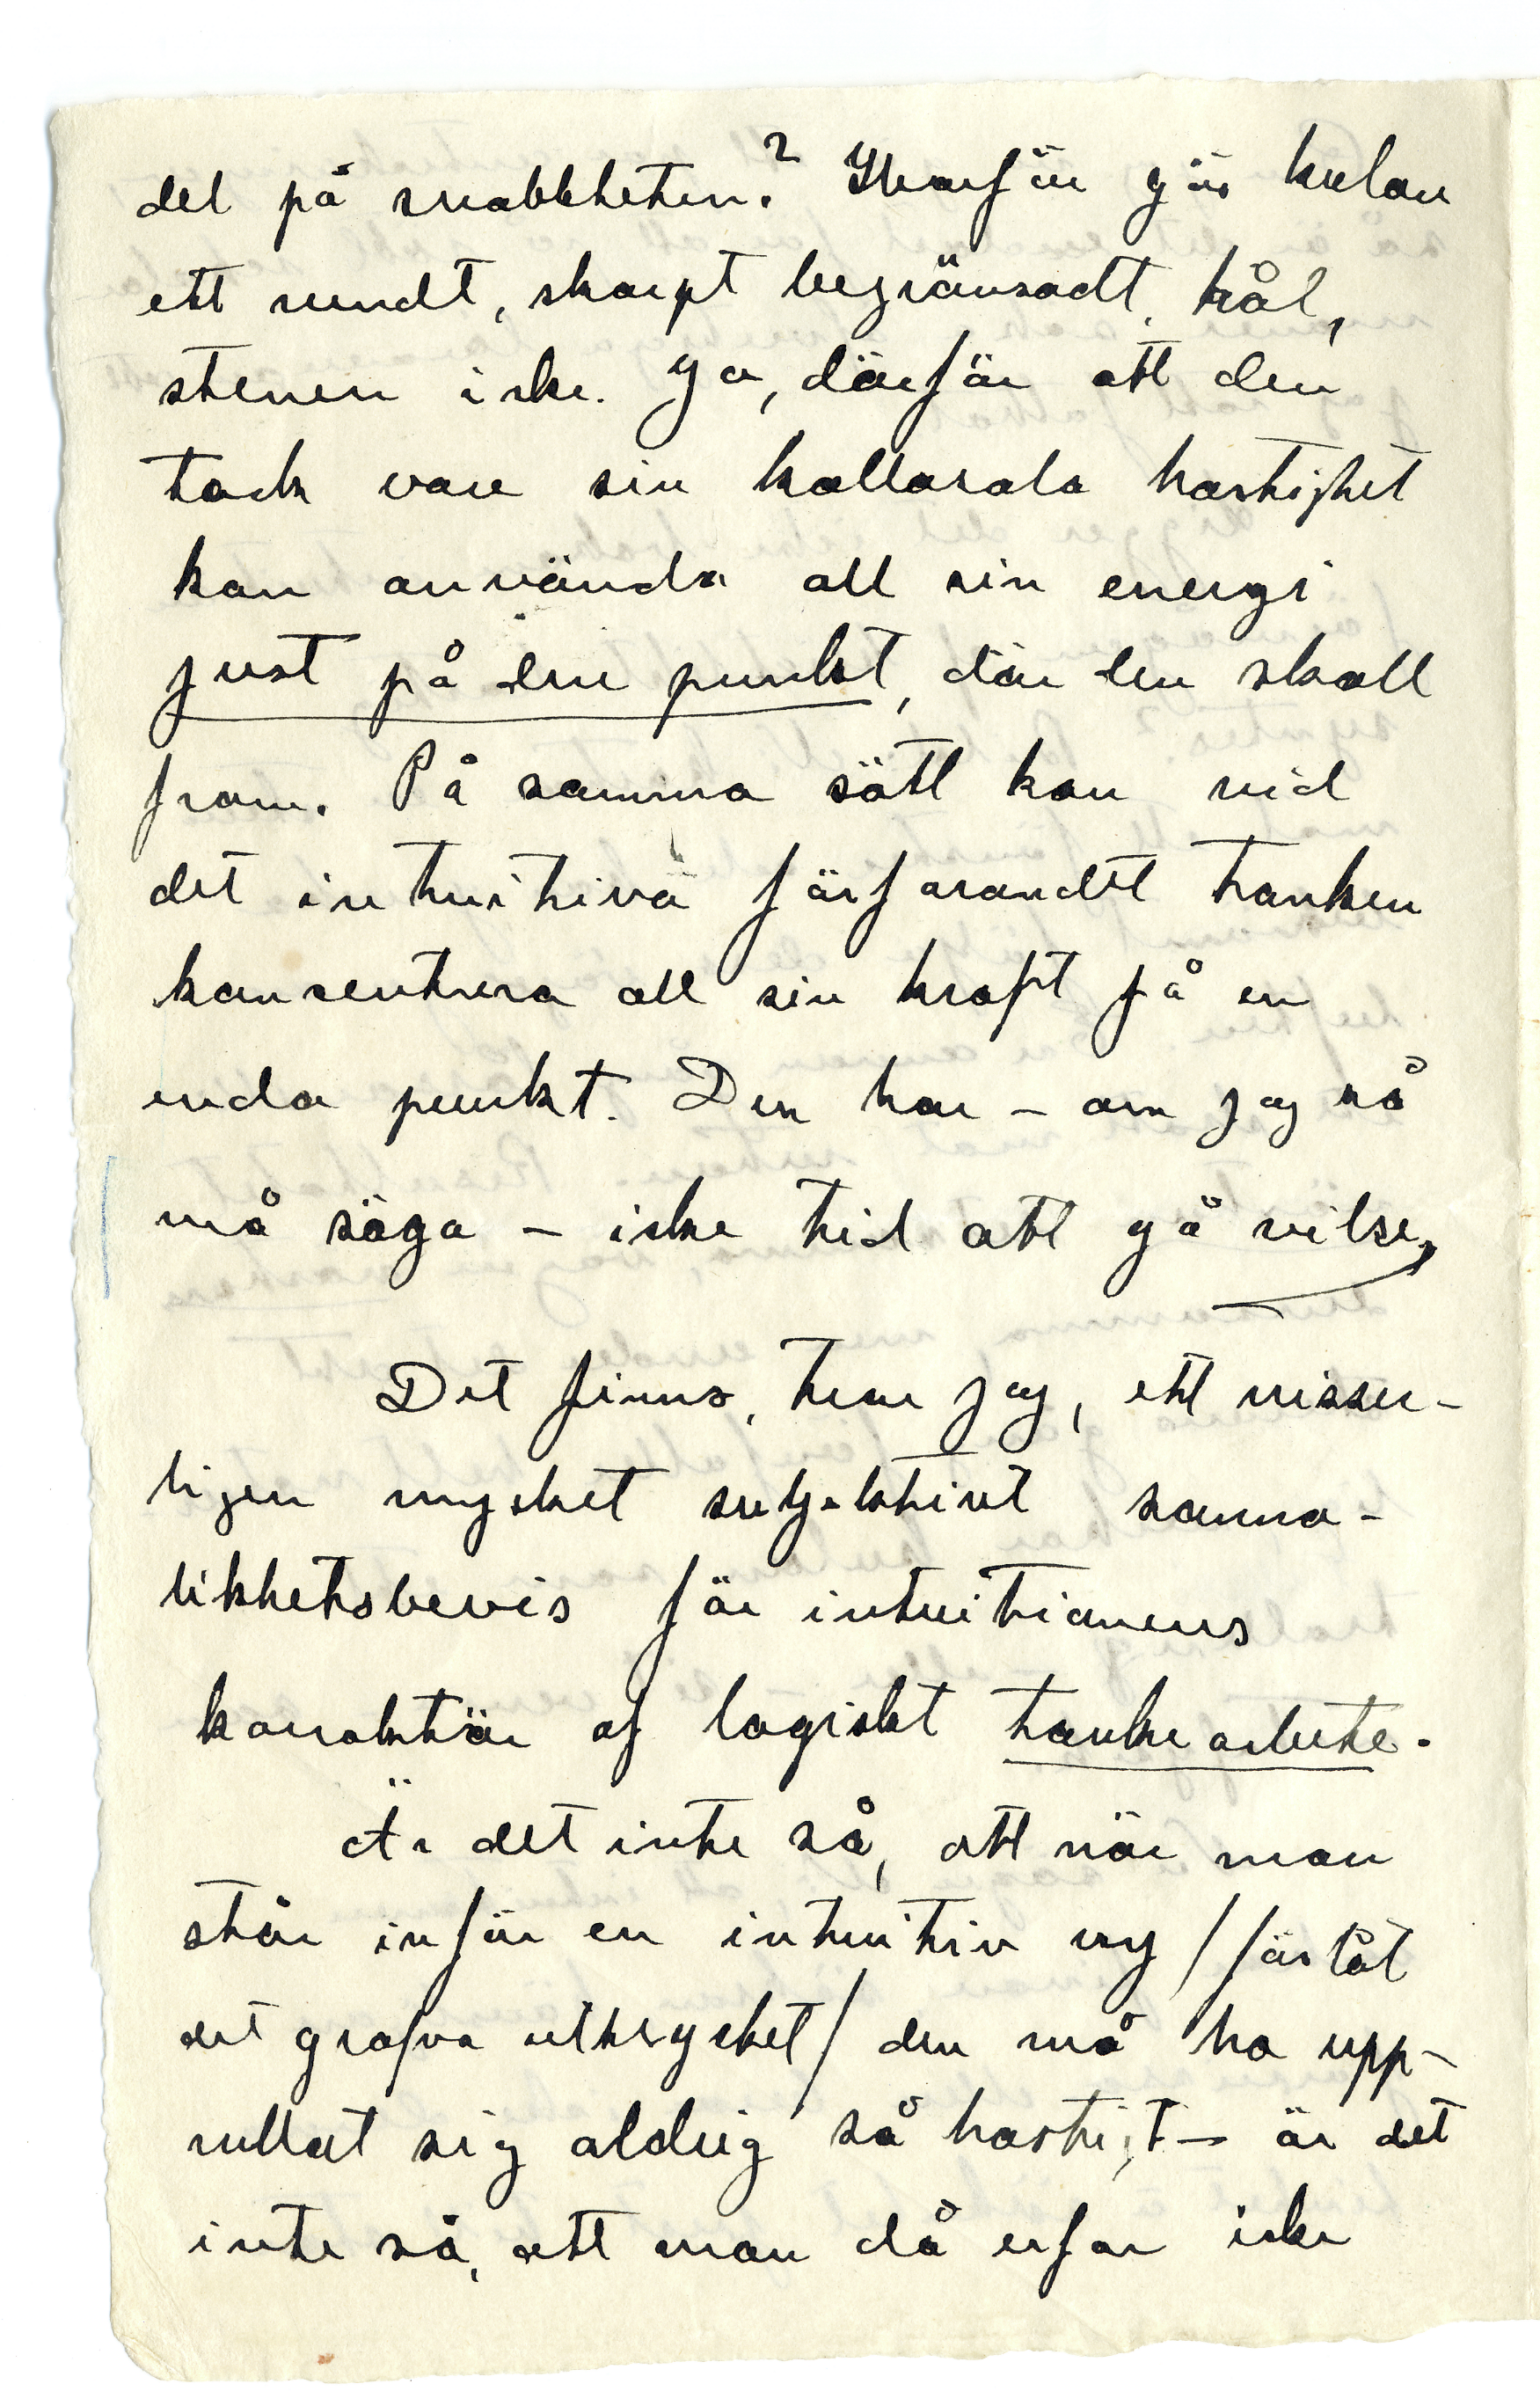 del på snabbheten? Hvarför gör kulan
ett rundt, skarpt begränsadt, hål,
stenen icke. Ja, därför att den
tack vare sin kollosala hastighet
kan använda all sin energi
just på den punkt, där den skall
fram. På samma sätt kan vid
det intuitiva förfarandet tanken
konsentrera all sin kraft på en
enda punkt. Den har – om jag så
må säga – icke tid att gå vilse,
Det finns, tror jag, ett visser-
ligen mycket subjektivt sanno-
likhetsbevis för intuitionens
karaktär af logiskt tankearbete.
Är det inte så, att när man
står inför en intuitiv vy /förlåt
det grofva uttrycket/ den må ha upp-
rullat sig aldrig så hastigt – är det
inte så, att man då erfar icke